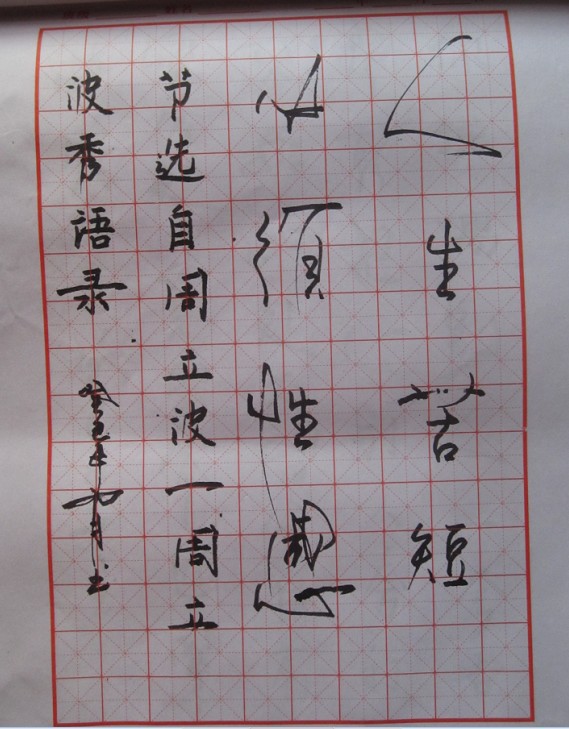 人生苦短
必須性感
节选自周立波一周立
波秀语录 癸巳年九月书